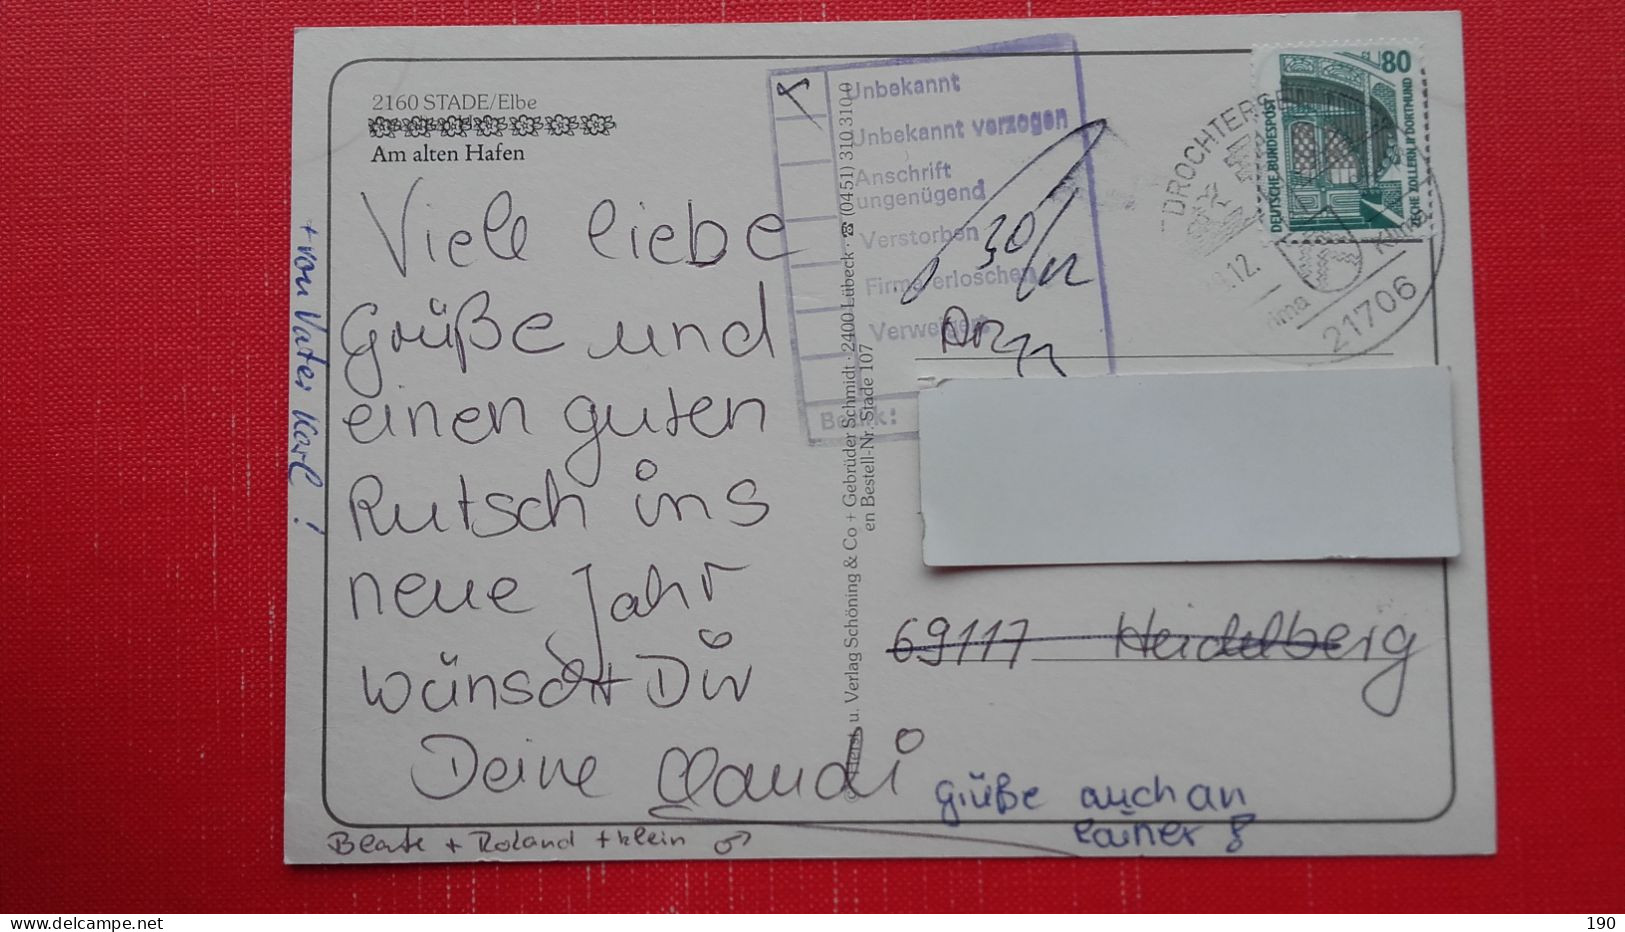 2160 STADE/Elbe
Am alten Hafen
Viele liebe
Grüße und
einen guten
Rutsch ins
neue Jahr
wünscht Dir
Deine Claudi
Beate + Roland + klein ♂
+ von Vater Karl!
u. Verlag Schöning & Co + Gebrüder Schmidt · 2400 Lübeck · ☎ (0451) 310 310 0
en Bestell-Nr. Stade 107
Unbekannt
Unbekannt verzogen
Anschrift
ungenügend
Verstorben
Firma erloschen
Verweigert
Bezirk:
30/12
DROCHTERSE
.12.
21706
80
DEUTSCHE BUNDESPOST
ZECHE ZOLLERN II DORTMUND
69117 Heidelberg
Grüße auch an
Rainer
delcampe.net
190